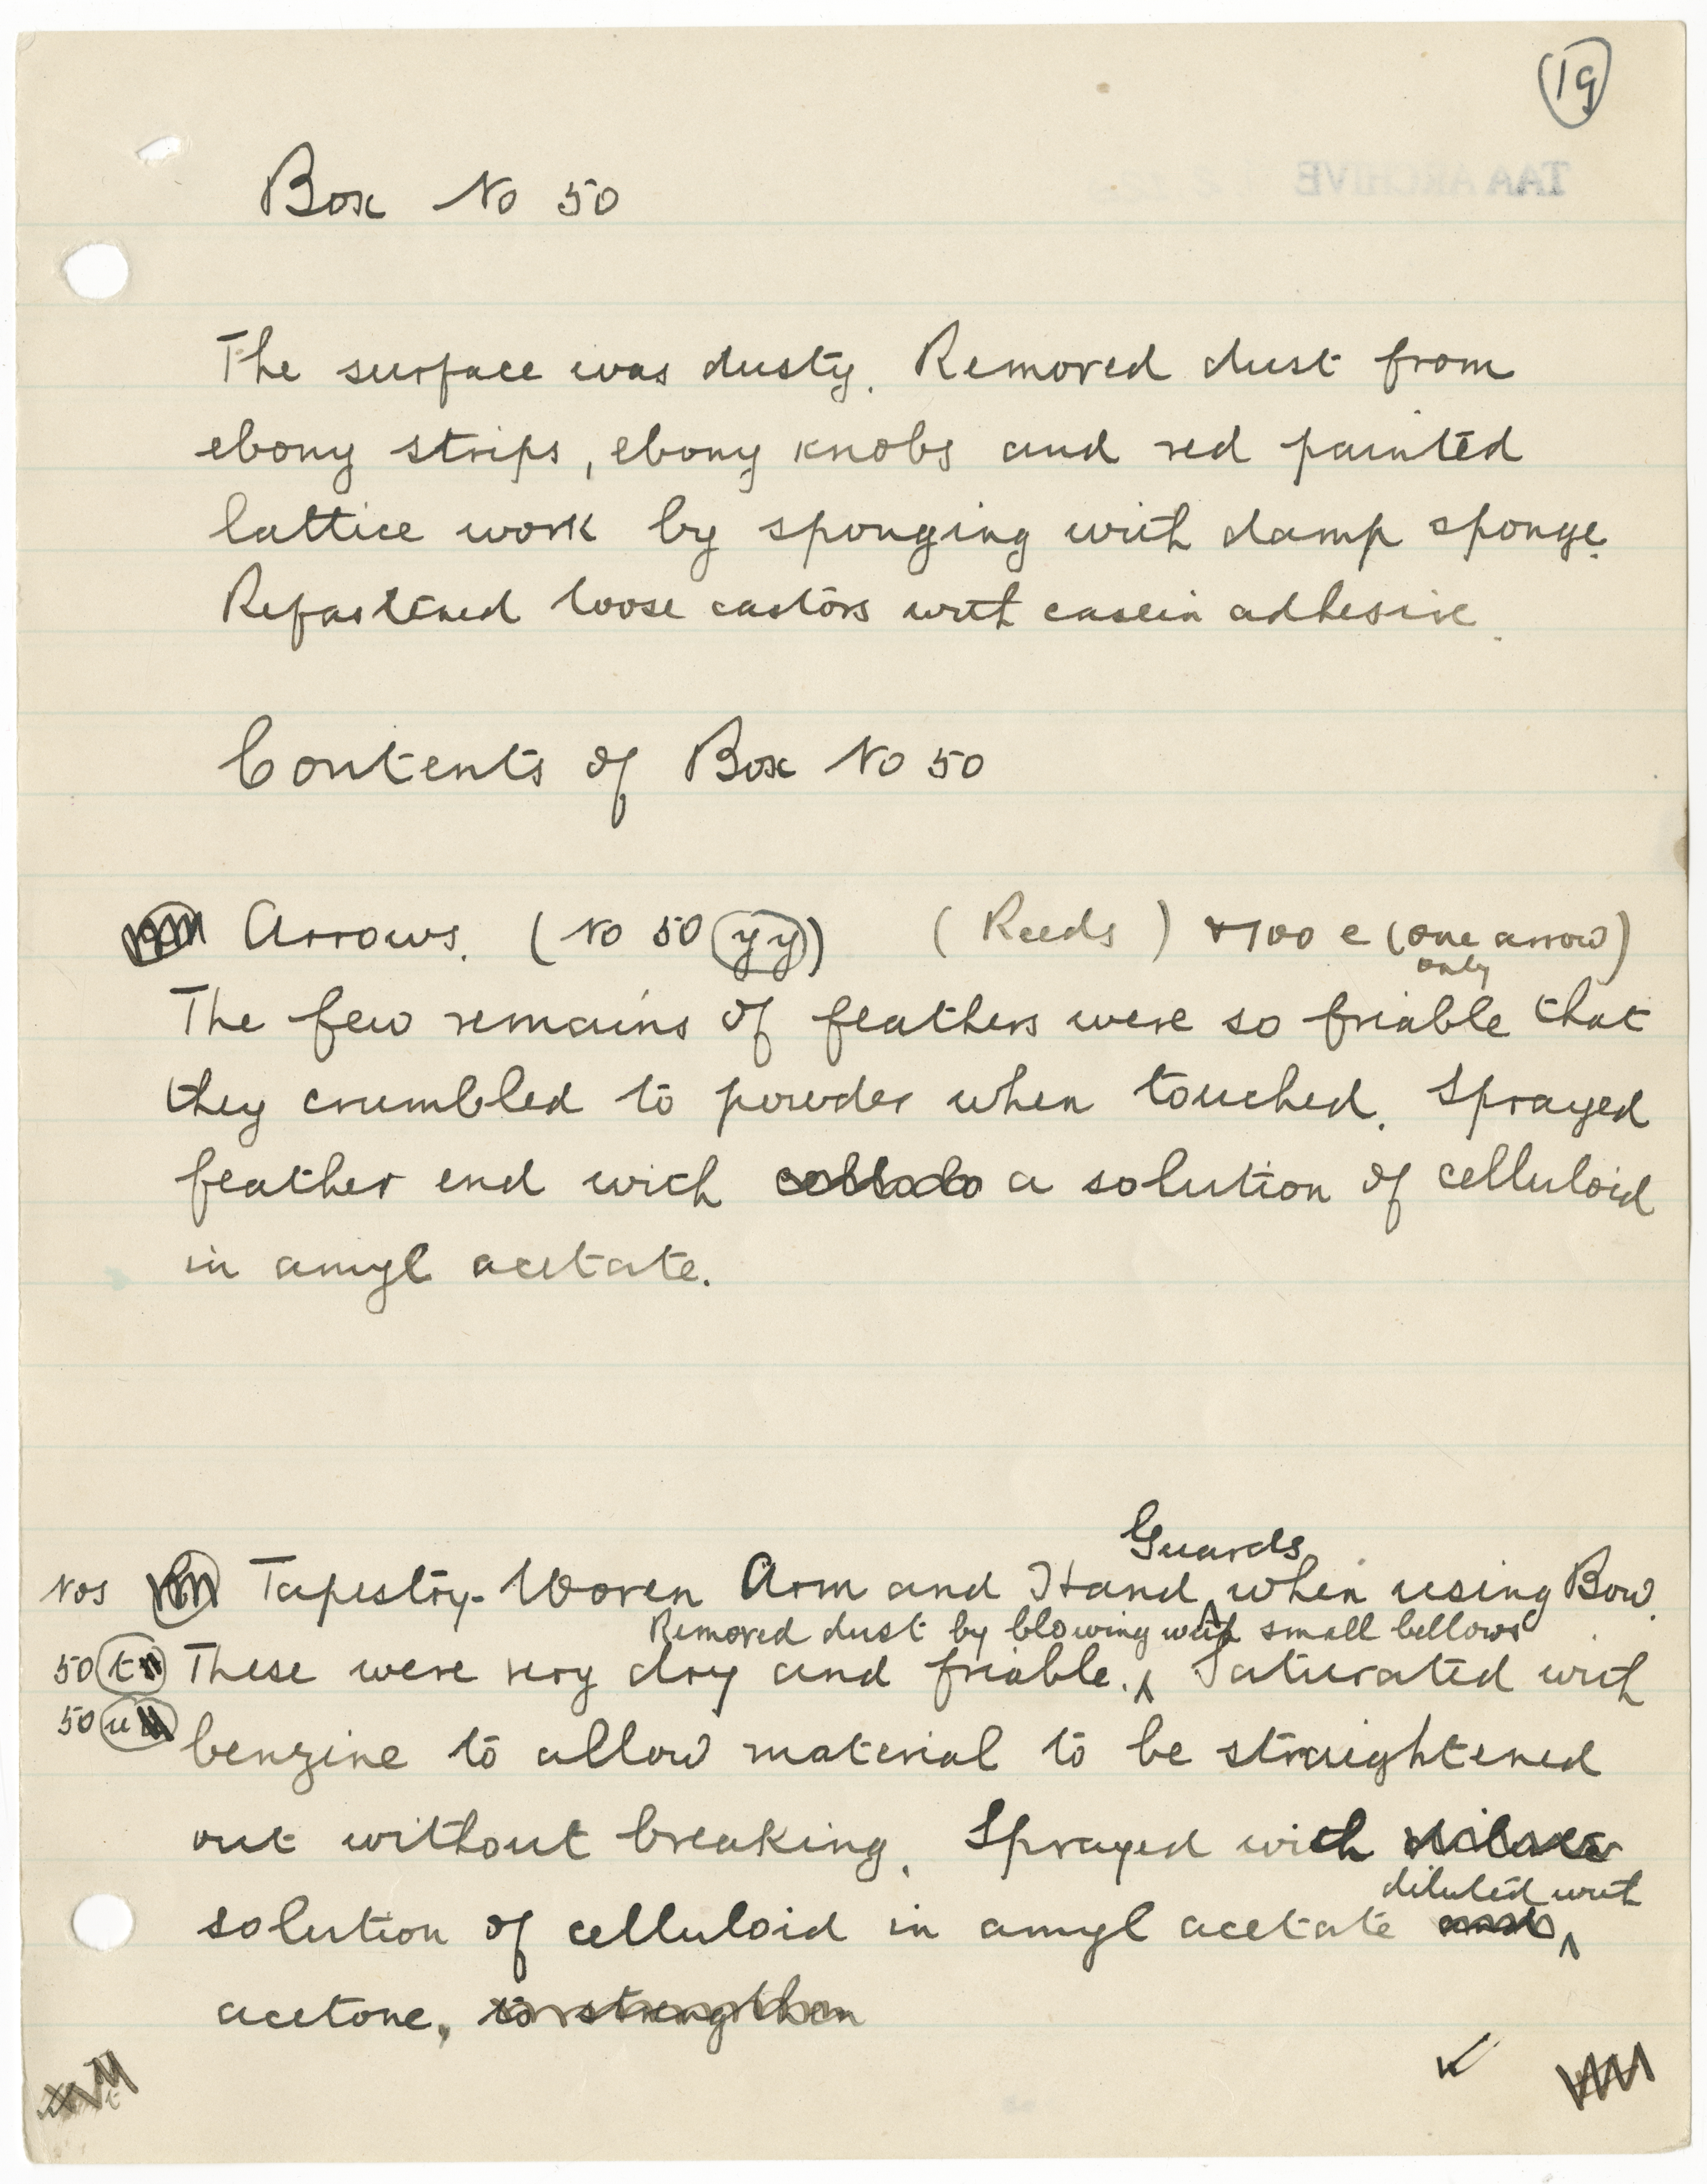 19
TAA ARCHIVE
Box No 50
The surface was dusty. Removed dust from
ebony strips, ebony knobs and red painted
lattice work by sponging with damp sponge.
Refastened loose castors with casein adhesive.
Contents of Box No 50
Arrows. (No 50 yy) (Reeds) 100 e (one arrow)
only
The few remains of feathers were so friable that
they crumbled to powder when touched. Sprayed
feather end with a solution of celluloid
in amyl acetate.
Guards
Nos Tapestry-Woven Arm and Hand ^ when using Bow.
Removed dust by blowing with small bellows
50 t These were very dry and friable. ^ Saturated with
50 u
benzine to allow material to be straightened
out without breaking. Sprayed with dilute
diluted with
solution of celluloid in amyl acetate and ^
acetone, to strengthen